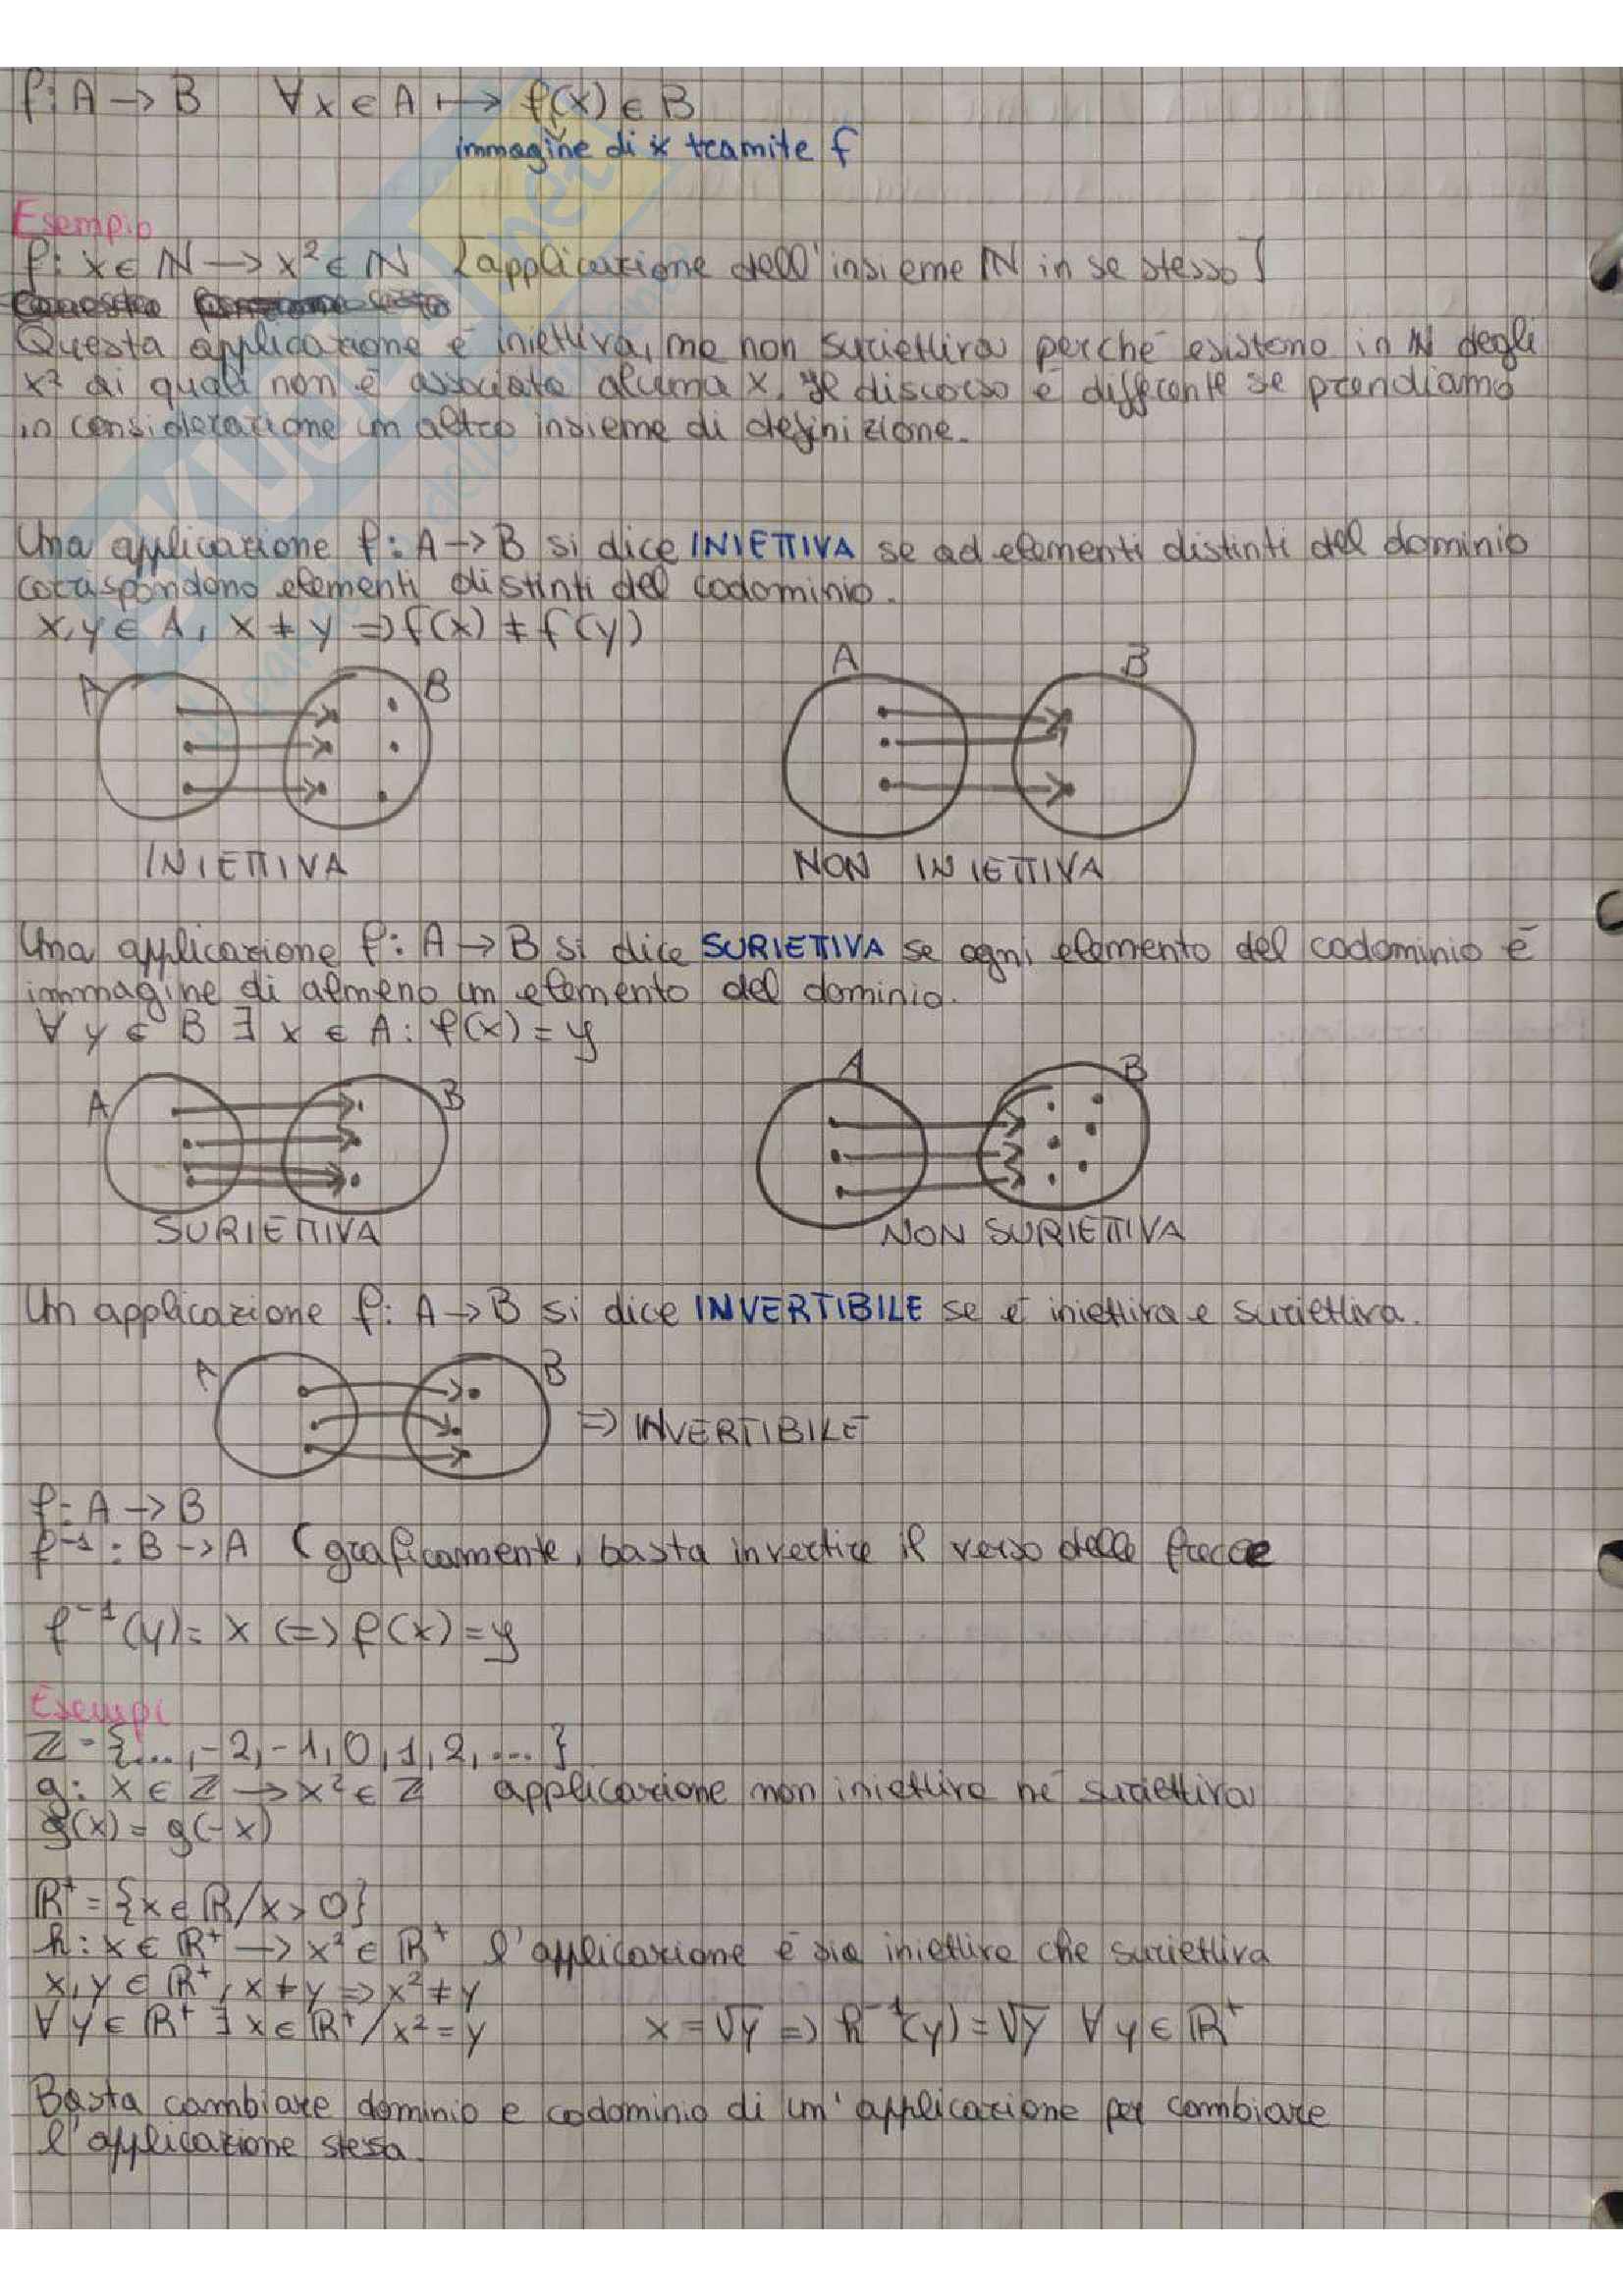 f: A → B ∀x ∈ A ↦ f(x) ∈ B
immagine di x tramite f
Esempio
f: x ∈ ℕ → x² ∈ ℕ {applicazione dell'insieme ℕ in se stesso}
Questa applicazione è iniettiva, ma non suriettiva perché esistono in ℕ degli
x² ai quali non è associata alcuna x. Il discorso è differente se prendiamo
in considerazione un altro insieme di definizione.
Una applicazione f: A → B si dice INIETTIVA se ad elementi distinti del dominio
corrispondono elementi distinti del codominio.
x, y ∈ A, x ≠ y ⇒ f(x) ≠ f(y)
A B A B
INIETTIVA NON INIETTIVA
Una applicazione f: A → B si dice SURIETTIVA se ogni elemento del codominio è
immagine di almeno un elemento del dominio.
∀ y ∈ B ∃ x ∈ A: f(x) = y
A B A B
SURIETTIVA NON SURIETTIVA
Un applicazione f: A → B si dice INVERTIBILE se è iniettiva e suriettiva.
A B ⇒ INVERTIBILE
f: A → B
f⁻¹: B → A (graficamente, basta invertire il verso delle frecce
f⁻¹(y) = x (=) f(x) = y
Esempi
ℤ = {..., -2, -1, 0, 1, 2, ...}
g: x ∈ ℤ → x² ∈ ℤ applicazione non iniettiva né suriettiva
g(x) = g(-x)
ℝ⁺ = {x ∈ ℝ / x > 0}
h: x ∈ ℝ⁺ → x² ∈ ℝ⁺ l'applicazione è sia iniettiva che suriettiva
x, y ∈ ℝ⁺, x ≠ y ⇒ x² ≠ y
∀ y ∈ ℝ⁺ ∃ x ∈ ℝ⁺ / x² = y x = √y ⇒ h⁻¹(y) = √y ∀ y ∈ ℝ⁺
Basta cambiare dominio e codominio di un'applicazione per cambiare
l'applicazione stessa.